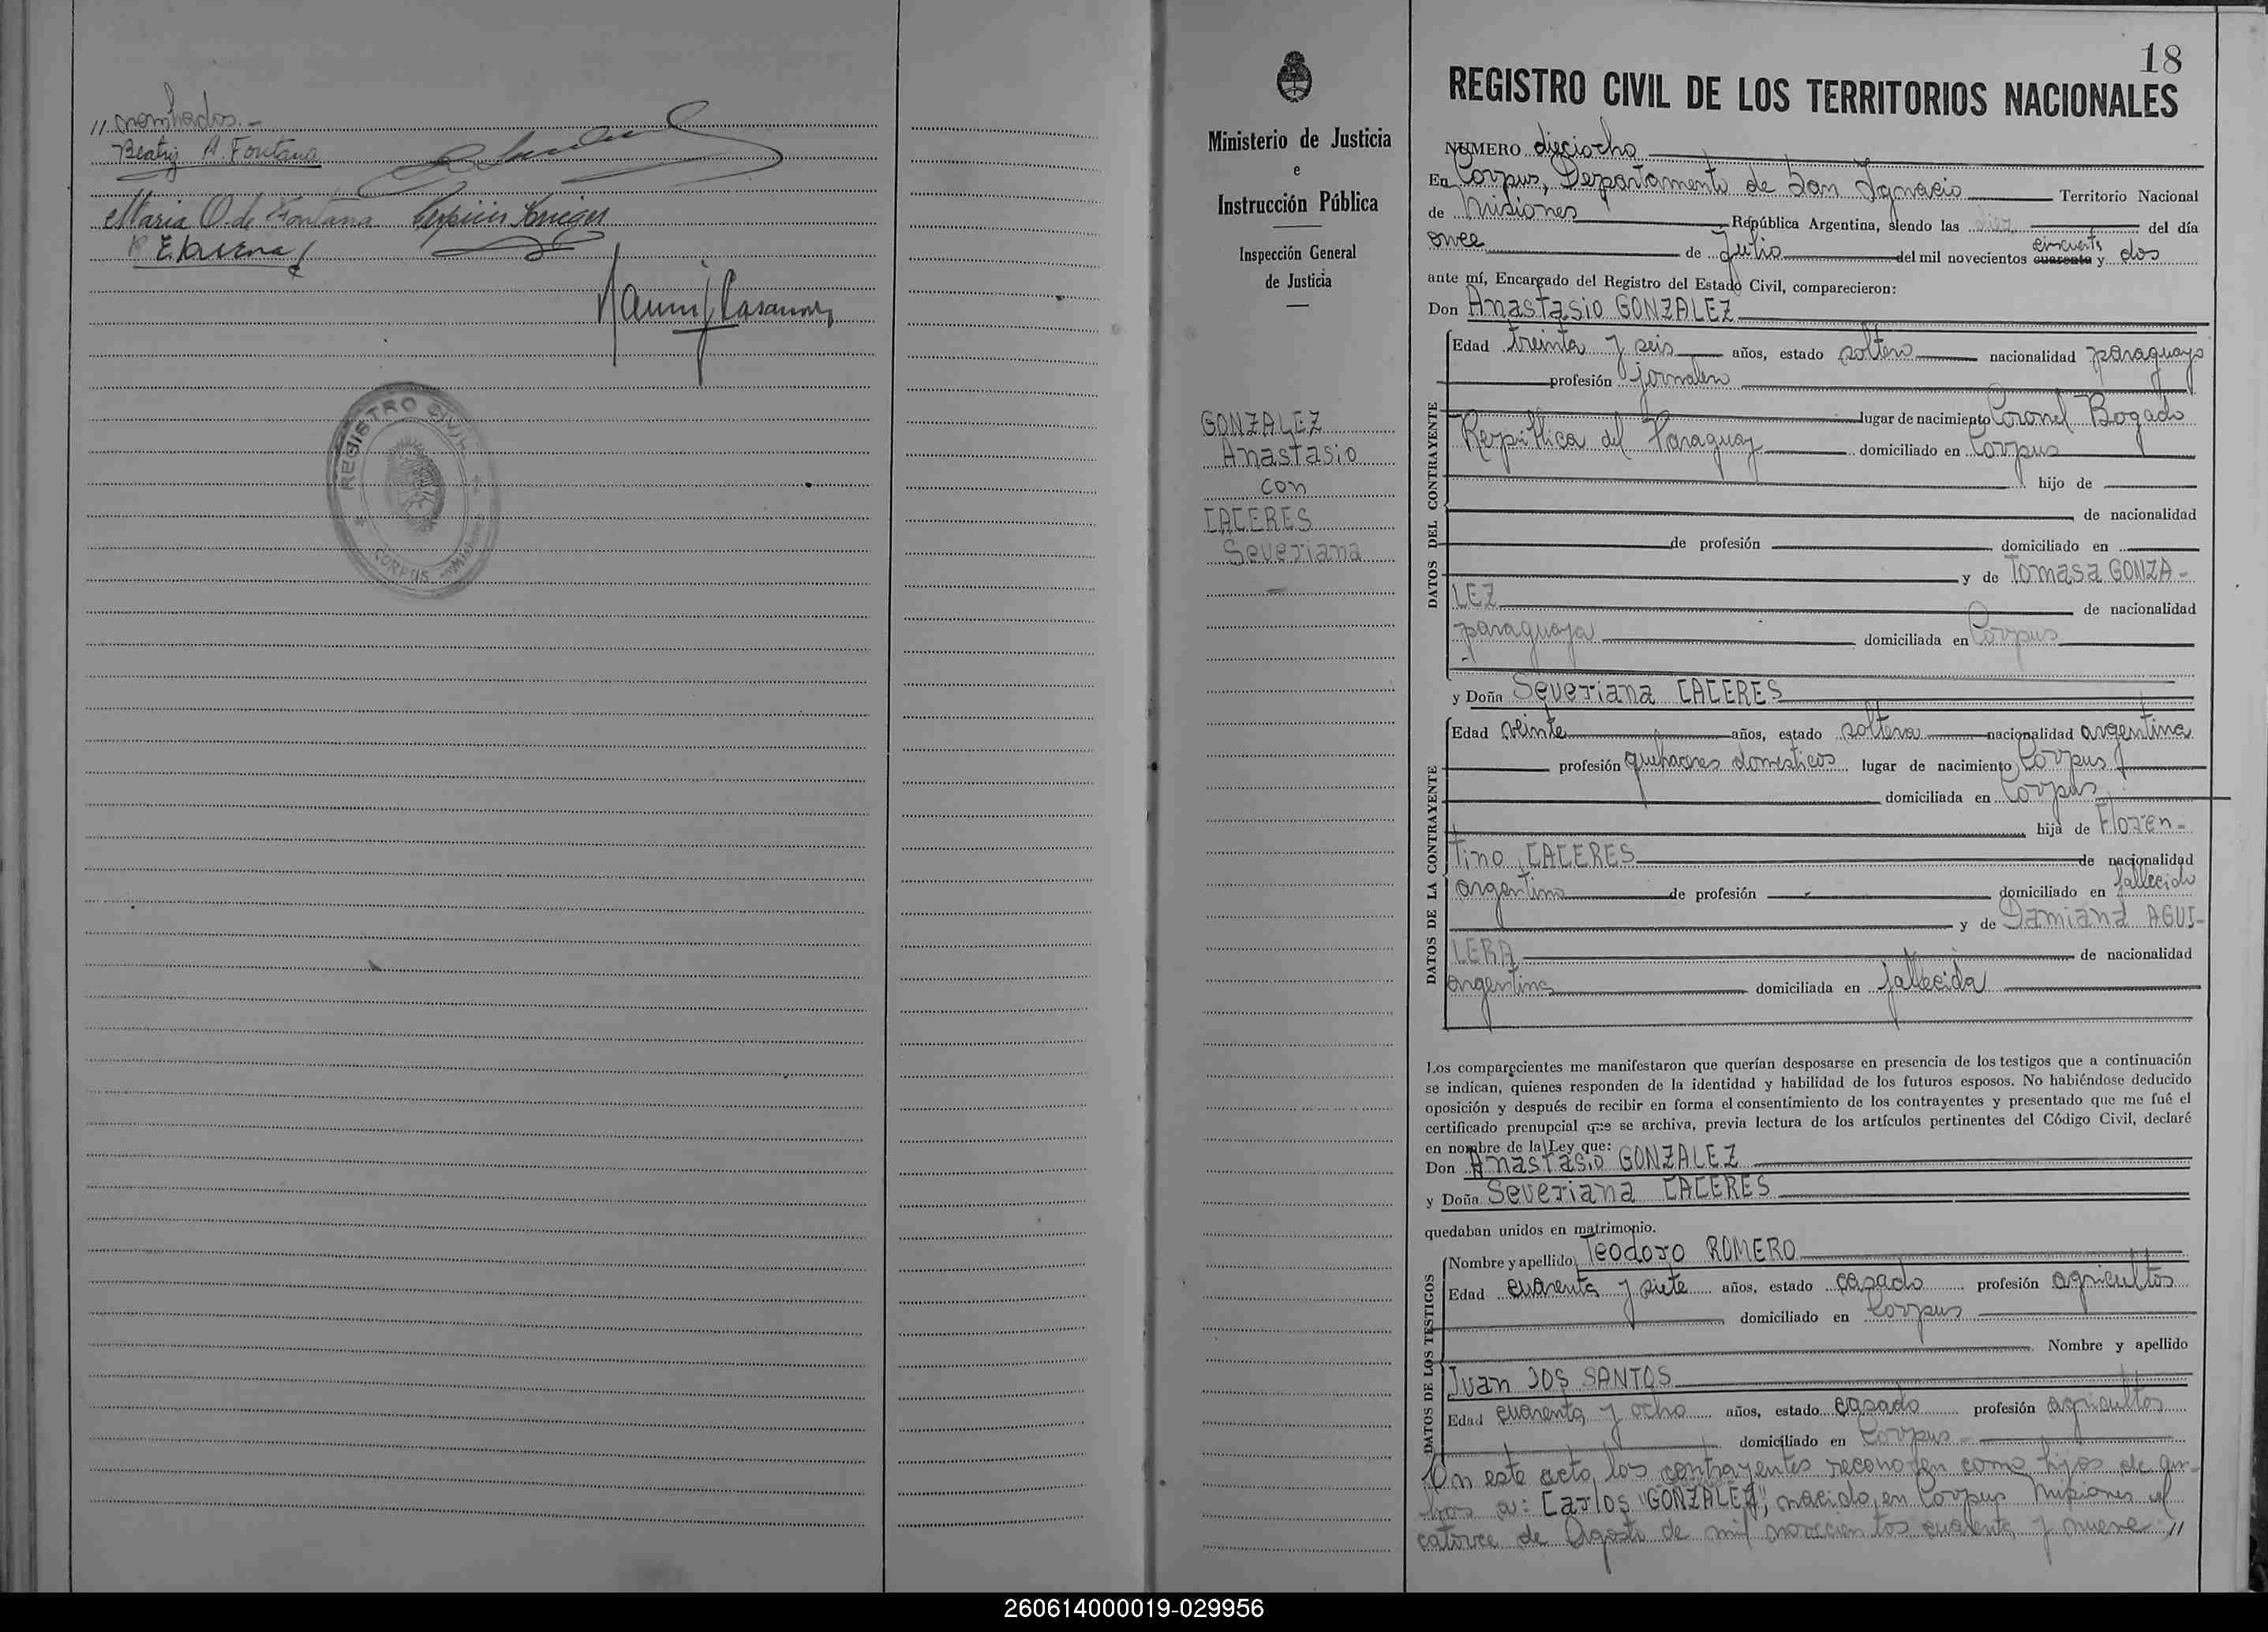 " nombrados.-
Beatriz A. Fontana
Maria O. de Fontana
REGISTRO CIVIL
CORPUS
Ministerio de Justicia
e
Instrucción Pública
Inspección General
de Justicia
GONZALEZ
Anastasio
con
CACERES
Severiana
18
REGISTRO CIVIL DE LOS TERRITORIOS NACIONALES
NUMERO dieciocho
En Corpus, Departamento de San Ignacio Territorio Nacional
de Misiones República Argentina, siendo las diez del día
cincuenta
once de Julio del mil novecientos cuarenta y dos
ante mí, Encargado del Registro del Estado Civil, comparecieron:
Don Anastasio GONZALEZ
DATOS DEL CONTRAYENTE
Edad treinta y seis años, estado soltero nacionalidad paraguayo
profesión jornalero
lugar de nacimiento Coronel Bogado
República del Paraguay domiciliado en Corpus
hijo de
de nacionalidad
de profesión domiciliado en
y de Tomasa GONZA-
LEZ de nacionalidad
paraguaya domiciliada en Corpus
y Doña Severiana CACERES
DATOS DE LA CONTRAYENTE
Edad veinte años, estado soltera nacionalidad argentina
profesión quehaceres domesticos lugar de nacimiento Corpus
domiciliada en Corpus
hija de Floren-
tino CACERES de nacionalidad
argentino de profesión domiciliado en fallecido
y de Damiana AGUI-
LERA de nacionalidad
argentina domiciliada en fallecida
Los comparecientes me manifestaron que querían desposarse en presencia de los testigos que a continuación
se indican, quienes responden de la identidad y habilidad de los futuros esposos. No habiéndose deducido
oposición y después de recibir en forma el consentimiento de los contrayentes y presentado que me fué el
certificado prenupcial que se archiva, previa lectura de los artículos pertinentes del Código Civil, declaré
en nombre de la Ley que:
Don Anastasio GONZALEZ
y Doña Severiana CACERES
quedaban unidos en matrimonio.
DATOS DE LOS TESTIGOS
Nombre y apellido Teodoro ROMERO
Edad cuarenta y siete años, estado casado profesión agricultor
domiciliado en Corpus
Nombre y apellido
Juan DOS SANTOS
Edad cuarenta y ocho años, estado casado profesión agricultor
domiciliado en Corpus
En este acto los contrayentes reconocen como hijos de am-
bos a: Carlos "GONZALEZ", nacido en Corpus Misiones el
catorce de Agosto de mil novecientos cuarenta y nueve "
260614000019-029956